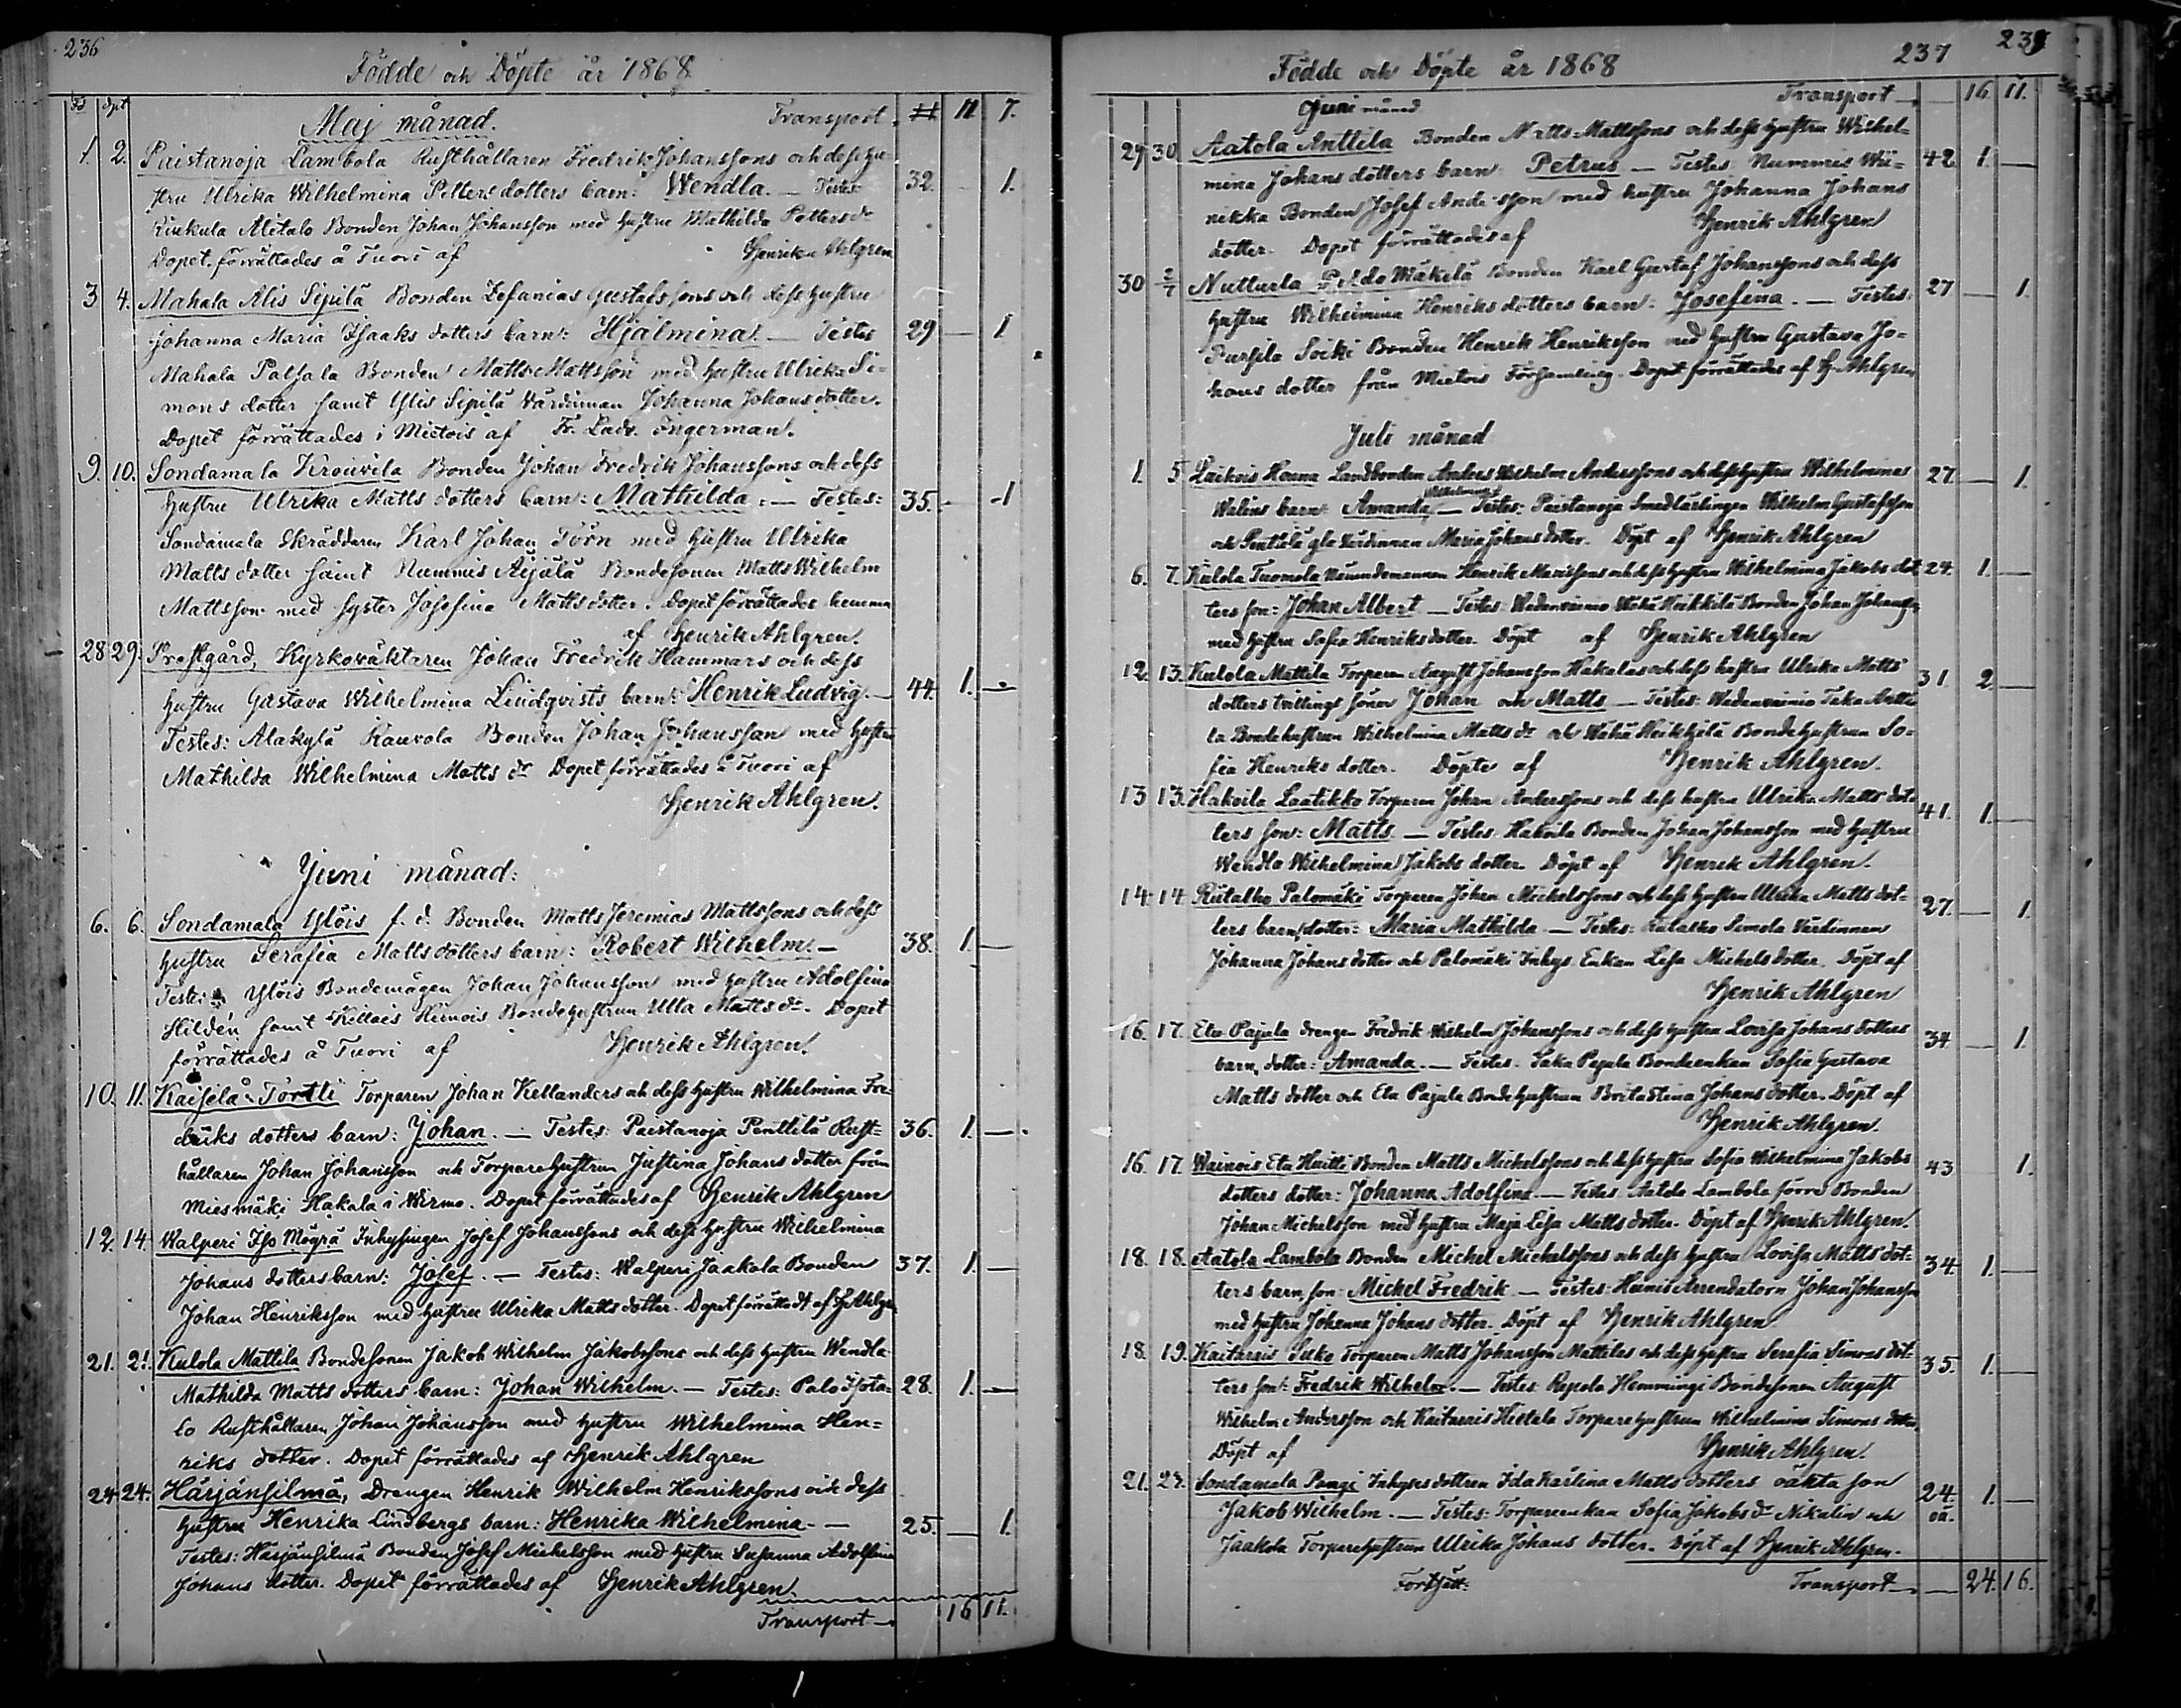 236
Födde och Döpte år 1868
Fd dpt
Maj månad. Transport. 11 7.
1. 2. Paistanoja Lambola Rusthållaren Fredrik Johanssons och dess hu-
stru Ulrika Wilhelmina Petters dotters barn: Wendla. — Testes: 32. 1.
Kiukula Alitalo Bonden Johan Johansson med hustru Mathilda Petters dr
Dopet förrättades å Tuori af Henrik Ahlgren
3 4. Mahala Alis Sipilä Bonden Zefanias Gustafssons och dess hustru
Johanna Maria Isaaks dotters barn: Hjalmina. — Testes 29 — 1
Mahala Palsala Bonden Matts Mattsson med hustru Ulrika Si-
mons dotter samt Ylis Sipilä Värdinnan Johanna Johans dotter.
Dopet förrättades i Mietois af Fr. Ladv. Ingerman.
9. 10. Sondamala Krouvila Bonden Johan Fredrik Johanssons och dess
hustru Ulrika Matts dotters barn: Mathilda. — Testes: 35. — 1
Sondamala Skräddaren Karl Johan Törn med hustru Ulrika
Matts dotter samt Nummis Äijälä Bondesonen Matts Wilhelm
Mattsson med syster Josefina Matts dotter. Dopet förrättades hemma
af Henrik Ahlgren.
28 29. Prestgård, Kyrkoväktaren Johan Fredrik Hammars och dess
hustru Gustava Wilhelmina Lindqvists barn: Henrik Ludvig. — 44. 1. —
Testes: Alakylä Kauvola Bonden Johan Johansson med hustru
Mathilda Wilhelmina Matts dr. Dopet förrättades å Tuori af
Henrik Ahlgren.
Juni månad:
6. 6. Sondamala Yløis f.d. Bonden Matts Jeremias Mattssons och dess
hustru Serafia Matts dotters barn: Robert Wilhelm. — 38. 1. —
Testes: Ylöis Bondemågen Johan Johansson med hustru Adolfina
Hildén samt Killais Bondehustrun Ulla Matts dr. Dopet
förrättades å Tuori af Henrik Ahlgren.
10. 11. Kaiselå Tortli Torparen Johan Kellanders och dess hustru Wilhelmina Fre-
driks dotters barn: Johan. — Testes: Paistanoja Penttilä Rust- 36. 1. —
hållaren Johan Johansson och Torparehustrun Justina Johans dotter från
Miesmäki Hakala i Wirmo. Dopet förrättades af Henrik Ahlgren
12. 14. Walperi Iso Mögrä Inhysingen Josef Johanssons och dess hustru Wilhelmina
Johans dotters barn: Josef. — Testes: Walperi Jaakola Bonden 37. 1. —
Johan Henriksson med hustru Ulrika Matts dotter. Dopet förrättadt af H. Ahlgren
21. 21. Kulola Mattila Bondesonen Jakob Wilhelm Jakobssons och dess hustru Wendla
Mathilda Matts dotters barn: Johan Wilhelm. — Testes: Palo Isota- 28. 1. —
lo Rusthållaren Johan Johansson med hustru Wilhelmina Hen-
riks dotter. Dopet förrättades af Henrik Ahlgren
24 24. Härjänsilmä, Drengen Henrik Wilhelm Henrikssons och dess
hustru Henrika Lindbergs barn: Henrika Wilhelmina. — 25. — 1.
Testes: Härjänsilmä Bonden Josef Michelsson med hustru Susanna Adolfina
Johans dotter. Dopet förrättades af Henrik Ahlgren.
Transport — 16 11.
237
Födde och Döpte år 1868
Juni månad Transport — 16. 11.
29 30 Aatola Anttila Bonden Matts Mattssons och dess hustru Wilhel-
mina Johans dotters barn Petrus — Testes Nummis Wii- 42 1. —
nikka Bonden Josef Andersson med hustru Johanna Johans
dotter. Dopet förrättades af Henrik Ahlgren
30 2/7 Nutturla Peldo Mäkilä Bonden Karl Gustaf Johanssons och dess
hustru Wilhelmina Henriks dotters barn: Josefina. — Testes: 27 — 1.
Pursila Soiki Bonden Henrik Henriksson med hustru Gustava Jo-
hans dotter från Mietois Församling. Dopet förrättades af H. Ahlgren
Juli månad
1. 5 Laikois Honna Landbonden Anders Wilhelm Anderssons och dess hustru Wilhelminas 27. — 1.
Walins barn: Amanda Wilhelmina — Testes: Paistanoja Smedlärlingen Wilhelm Gustafsson
och Penttilä gla Värdinnan Maria Johans dotter. Döpt af Henrik Ahlgren
6. 7. Kulola Tuomola Nämndemannen Henrik Henrikssons och dess hustru Wilhelmina Jakobs dot- 24. 1. —
ters son: Johan Albert — Testes: Wedenvainio Wähä Heikkilä Bonden Johan Johansson
med hustru Sofia Henriks dotter. Döpt af Henrik Ahlgren
12. 13. Kulola Mattila Torparen August Johansson Hakalas och dess hustru Ulrika Matts 31. 2 —
dotters tvillings söner Johan och Matts — Testes: Wedenvainio Taka Antti-
la Bondehustrun Wilhelmina Matts dr och Wähä Heikkilä Bondehustrun So-
fia Henriks dotter. Döpte af Henrik Ahlgren.
13 13. Hakoila Laatikko Torparen Johan Anderssons och dess hustru Ulrika Matts dot- 41. 1. —
ters son: Matts — Testes: Hakoila Bonden Johan Johansson med hustru
Wendla Wilhelmina Jakobs dotter. Döpt af Henrik Ahlgren.
14 14 Rutalko Palomäki Torparen Johan Michelssons och dess hustru Ulrika Matts dot- 27. — 1.
ters barn, dotter: Maria Mathilda — Testes: Rutalko Simola Värdinnan
Johanna Johans dotter och Palomäki Inhys. Enkan Lisa Michels dotter. Döpt af
Henrik Ahlgren
16. 17. Eta Pajula Drengen Fredrik Wilhelm Johanssons och dess hustru Lovisa Johans dotters 34 — 1.
barn, dotter: Amanda. — Testes: Taka Pajula Bondeenkan Sofia Gustava
Matts dotter och Eta Pajula Bondehustrun Brita Stina Johans dotter. Döpt af
Henrik Ahlgren.
16. 17. Wainois Eta Huitti Bonden Matts Michelssons och dess hustru Sofia Wilhelmina Jakobs 43 1.
dotters dotter: Johanna Adolfina. — Testes: Aatola Lambola förre Bonden
Johan Michelsson med hustru Maja Lisa Matts dotter. Döpt af Henrik Ahlgren.
18. 18. Aatola Lambola Bonden Michel Michelssons och dess hustru Lovisa Matts dot- 34. 1. —
ters barn, son: Michel Fredrik. — Testes: Hunnis Arrendatorn Johan Johansson
med hustru Johanna Johans dotter. Döpt af Henrik Ahlgren
18. 19. Kaitarais Suko Torparen Matts Johansson Mattilas och dess hustru Serafia Simons dot- 35. 1. —
ters son: Fredrik Wilhelm. — Testes: Repola Hemmingi Bondesonen August
Wilhelm Andersson och Kaitarais Hietala Torparehustrun Wilhelmina Simons dotter.
Döpt af Henrik Ahlgren.
21. 22. Sondamala Pengi Inhyses dottren Ida Karlina Matts dotters oäkta son 24. 1. —
Jakob Wilhelm. — Testes: Torpareenkan Sofia Jakobs dr Nikulin och oä.
Jaakola Torparehustrun Ulrika Johans dotter. Döpt af Henrik Ahlgren.
Fortsätt: Transport — 24. 16.